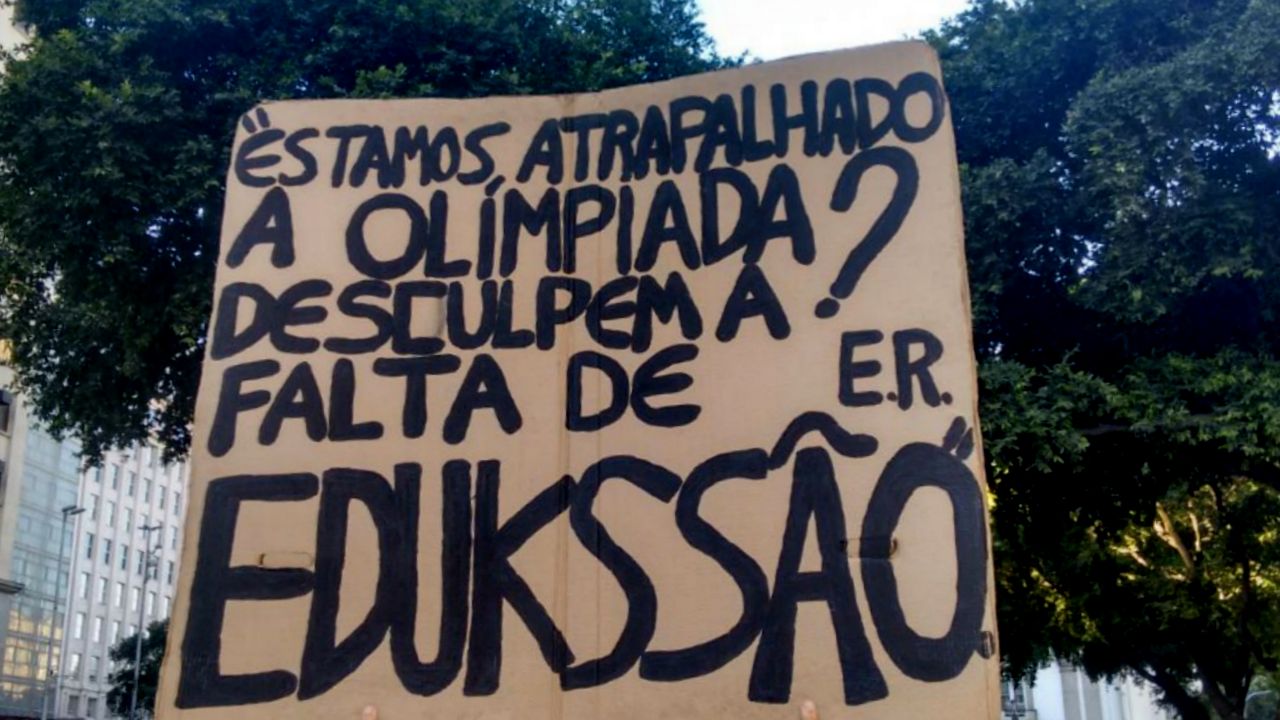 "ESTAMOS ATRAPALHADO
A OLÍMPIADA?
DESCULPEM A
FALTA DE E.R.
EDUKSSÃO"